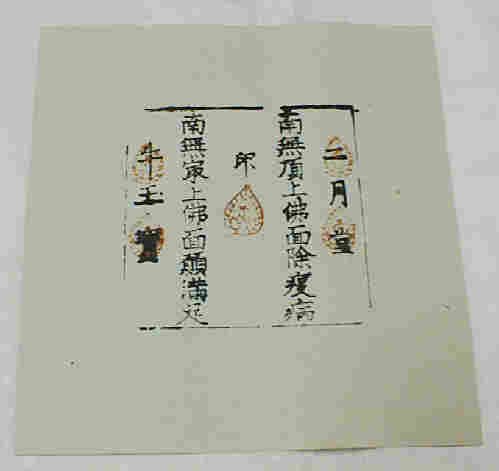 二月堂
南無頂上佛面除疫病
印
南無最上佛面願滿足
牛玉寶